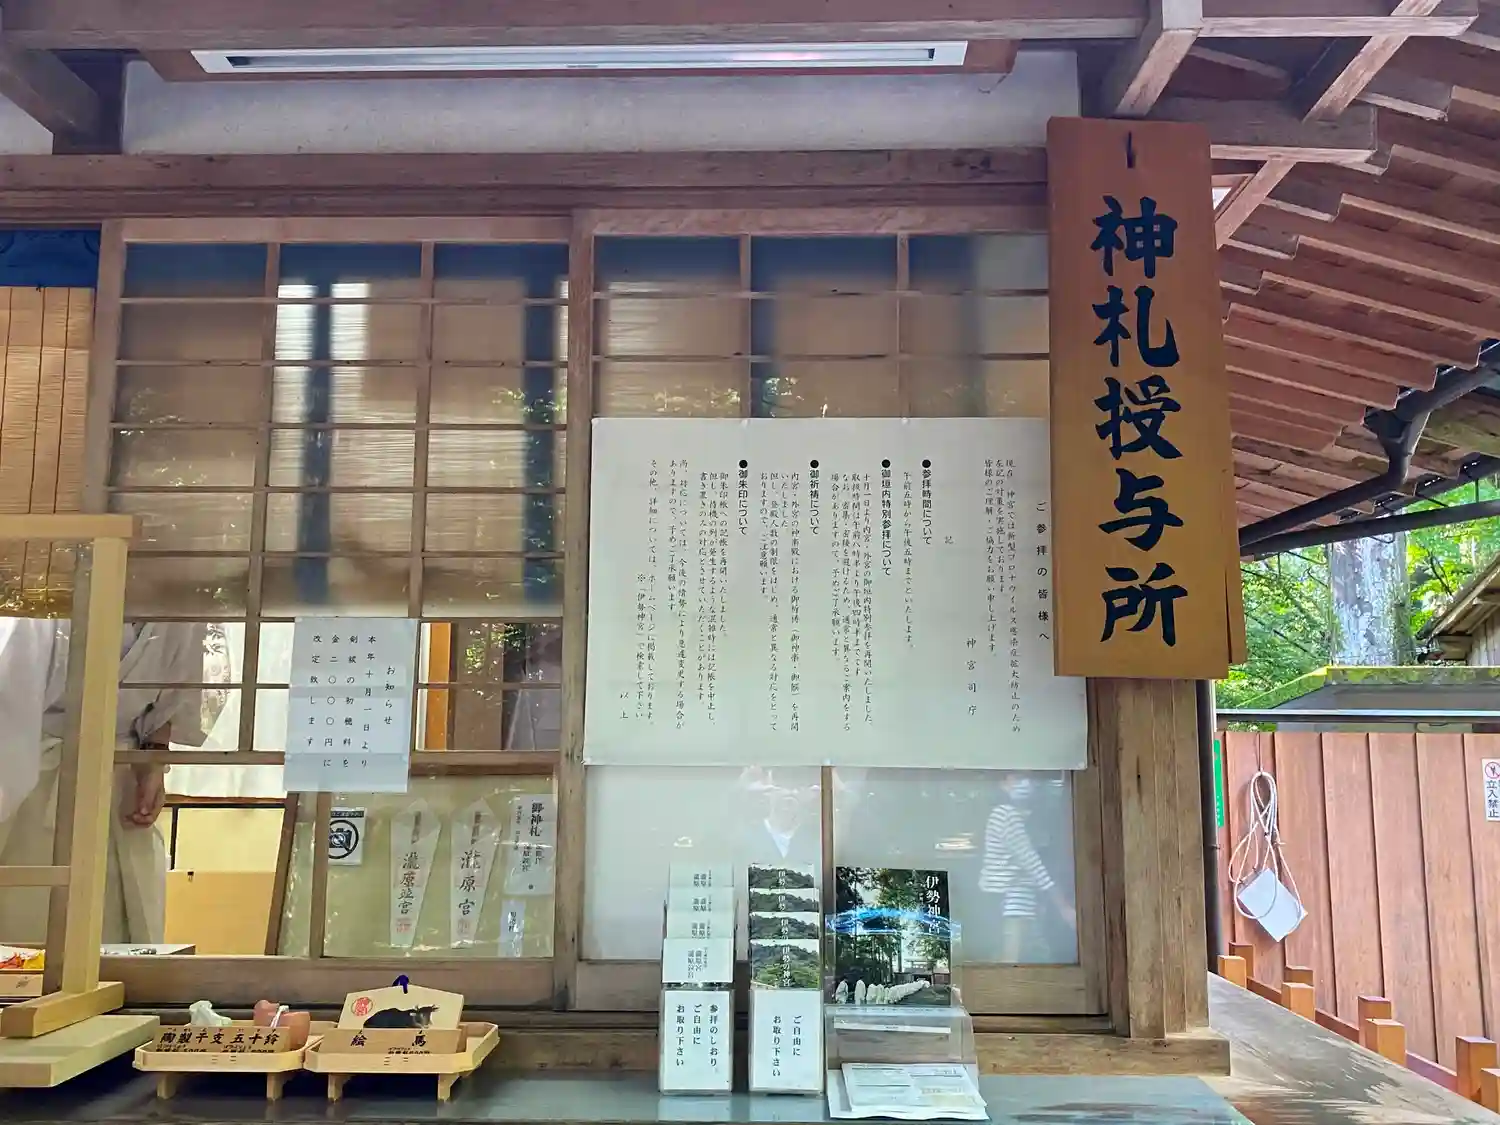 神札授与所
ご参拝の皆様へ
現在、神宮では新型コロナウイルス感染症拡大防止のため
左記の対策を実施しております。
皆様のご理解・ご協力をお願い申し上げます。
神宮司庁
記
●参拝時間について
午前五時から午後五時までといたします。
●御垣内特別参拝について
十月一日より内宮・外宮の御垣内特別参拝を再開いたしました。
取扱時間は午前八時半より午後四時半までです
なお、密集・密接を避けるため、通常と異なるご案内をする
場合がありますので、予めご了承願います。
●御祈祷について
内宮・外宮の神楽殿における御祈祷（御神楽・御饌）を再開
いたしました
但し、昇殿人数の制限をはじめ、通常と異なる対応をとって
おりますので、ご注意願います。
●御朱印について
御朱印帳への記帳を再開いたしました。
但し、待機の列が発生するような混雑時には記帳を中止し、
書き置きのみの対応とさせていただくことがあります。
尚、対応については、今後の情勢により急遽変更する場合が
ありますので、予めご了承願います
その他、詳細については、ホームページに掲載しております。
※「伊勢神宮」で検索して下さい
以上
お知らせ
本年十月一日より
剣祓の初穂料を
金二〇〇円に
改定致します
御神札
瀧原宮
瀧原竝宮
伊勢神宮
参拝のしおり。
ご自由に
お取り下さい
ご自由に
お取り下さい
陶製干支五十鈴
絵馬
立入禁止